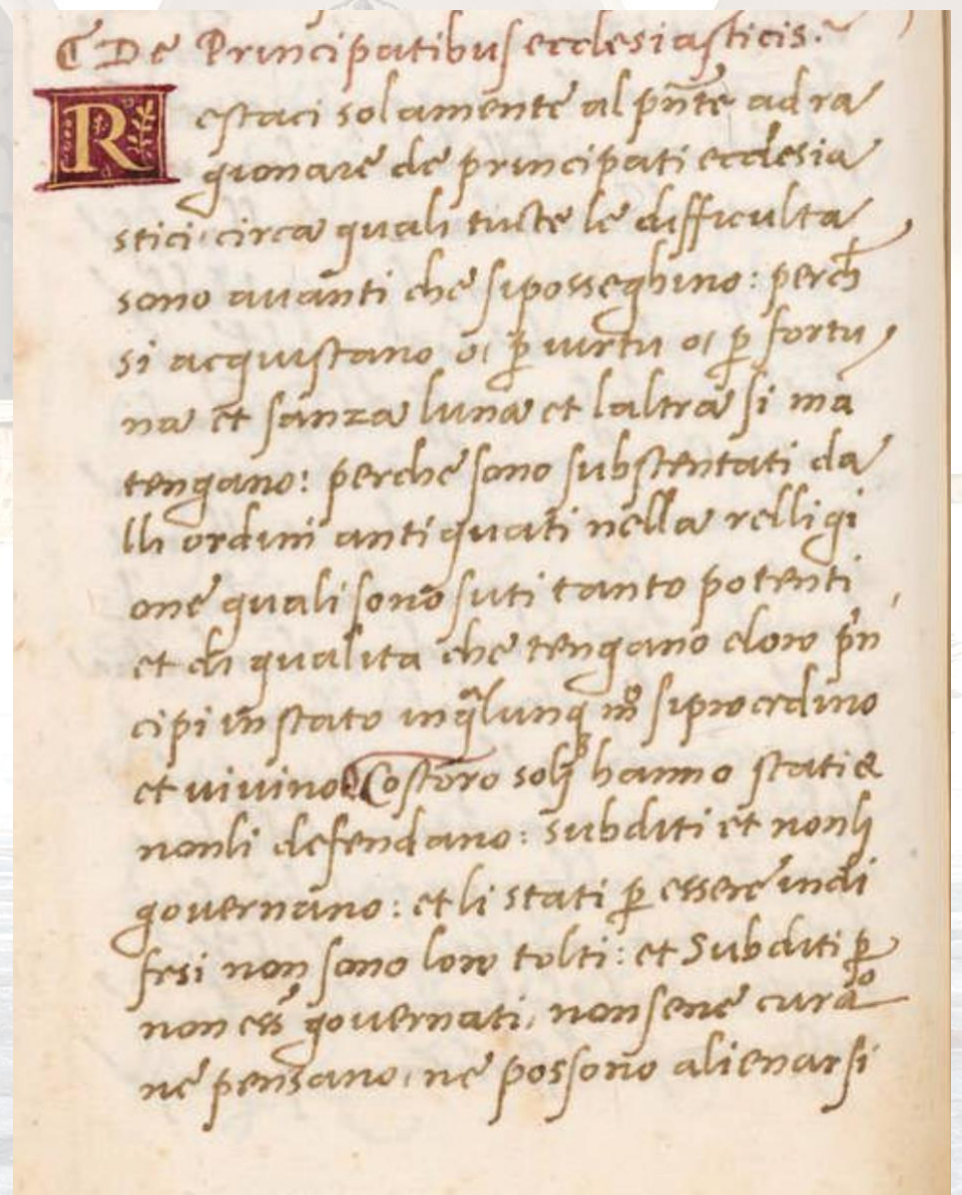 ⁋ De Principatibus ecclesiasticis.
Restaci solamente al pñte ad ra
gionare de principati ecclesia
stici circa quali tucte le difficulta
sono auanti che si posseghino: perch̄
si acquistano o, ꝑ uirtu o, ꝑ fortu
na et sanza luna et laltra si mā
tengano: perche sono substentati da
lli ordini antiquati nella relligi
one quali sono suti tanto potenti
et di qualita che tengano eloro prin
cipi in stato in qᵃlunqꝫ mº si procedino
et uiuino. Costoro soli hanno stati &
non li defendano: subditi et non li
gouernano: et li stati ꝑ essere indi
fesi non sono loro tolti: et Subditi ꝑ
non ess gouernati, non sene curāº
ne pensano, ne possono alienarsi